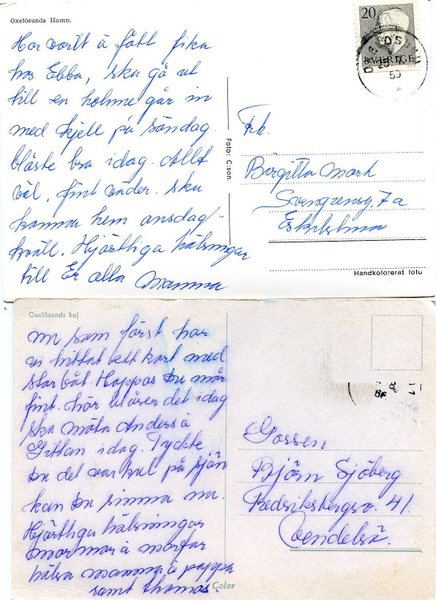 Oxelösunds Hamn.
Har varit å fått fika
hos Ebba, ska gå ut
till en holme går in
med Kjell på söndag.
blåste bra idag. Allt
väl, fint väder. ska
komma hem onsdag/
kväll. Hjärtliga hälsningar
till Er alla Mamma
Foto: C:son.
20
SVERIGE
Frk.
Birgitta
7a
Eskilstuna
Handkolorerat foto
Oxelösunds kaj
nu som först har
vi hittat ett kort med
stor båt Hoppas Du mår
fint. här blåser det idag
ska möta Anders å
Gittan idag. Tyckte
Du det var kul på sjön
kan Du simma nu
Hjärtliga hälsningar
mormor å morfar
hälsa mamma å pappa
samt Thomas.
Color
Gossen
Björn Sjöberg
Fredriksbergsv. 41.
Vendelsö.